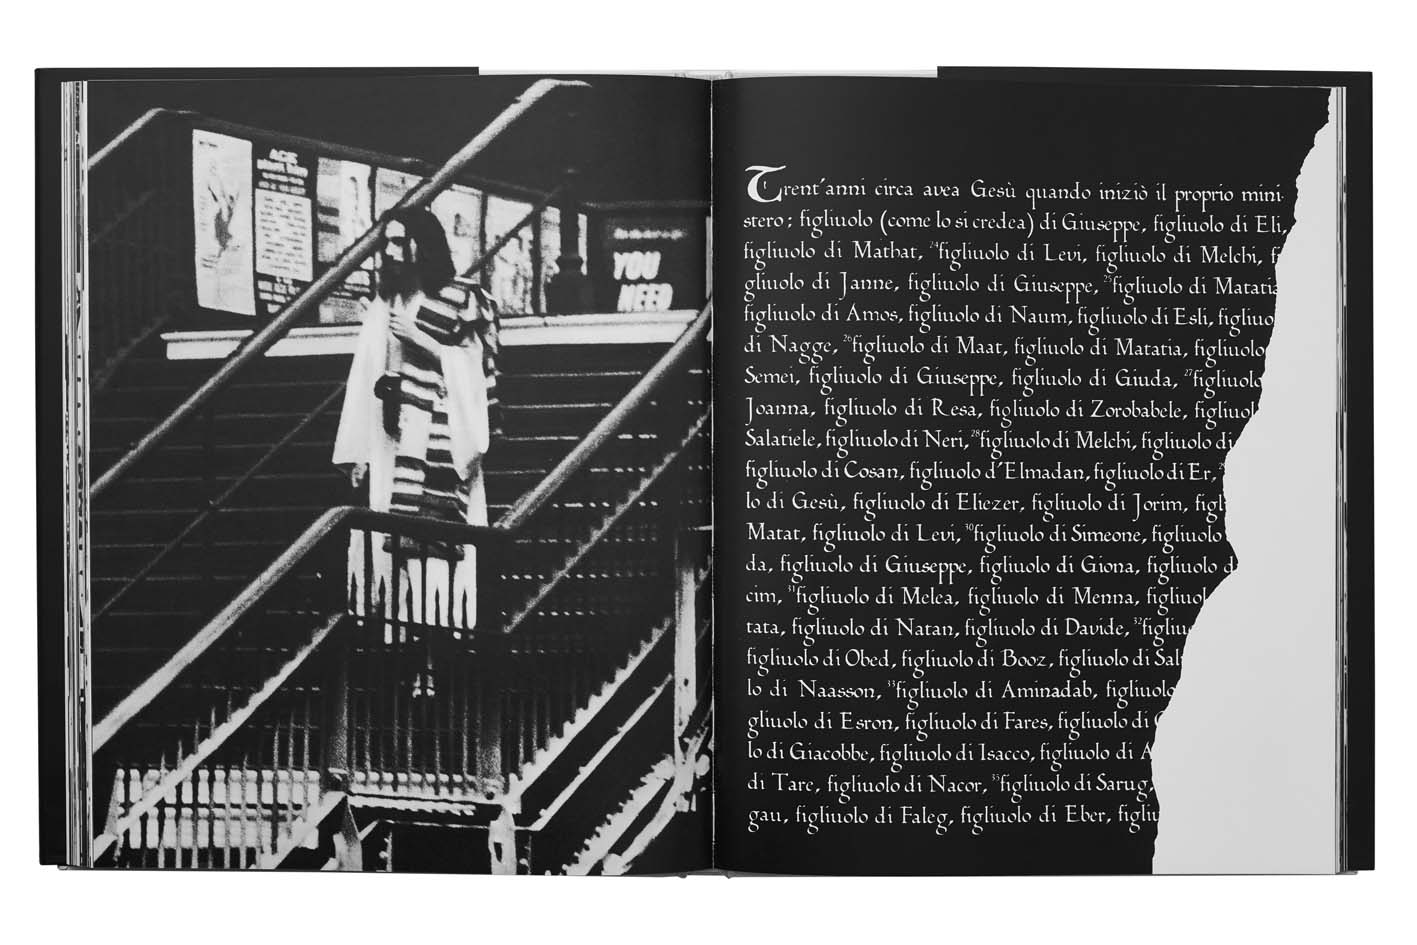 ACE
YOU
NEED
Trent'anni circa avea Gesù quando iniziò il proprio mini-
stero; figliuolo (come lo si credea) di Giuseppe, figliuolo di Eli,
figliuolo di Mathat, 24figliuolo di Levi, figliuolo di Melchi, fi
gliuolo di Janne, figliuolo di Giuseppe, 25figliuolo di Matatia
figliuolo di Amos, figliuolo di Naum, figliuolo di Esli, figliuo
di Nagge, 26figliuolo di Maat, figliuolo di Matatia, figliuolo
Semei, figliuolo di Giuseppe, figliuolo di Giuda, 27figliuolo
Joanna, figliuolo di Resa, figliuolo di Zorobabele, figliuol
Salatiele, figliuolo di Neri, 28figliuolo di Melchi, figliuolo di
figliuolo di Cosan, figliuolo d'Elmadan, figliuolo di Er, 29
lo di Gesù, figliuolo di Eliezer, figliuolo di Jorim, figl
Matat, figliuolo di Levi, 30figliuolo di Simeone, figliuolo
da, figliuolo di Giuseppe, figliuolo di Giona, figliuolo d
cim, 31figliuolo di Melea, figliuolo di Menna, figliuol
tata, figliuolo di Natan, figliuolo di Davide, 32figliu
figliuolo di Obed, figliuolo di Booz, figliuolo di Sal
lo di Naasson, 33figliuolo di Aminadab, figliuolo
gliuolo di Esron, figliuolo di Fares, figliuolo di
lo di Giacobbe, figliuolo di Isacco, figliuolo di A
di Tare, figliuolo di Nacor, 35figliuolo di Sarug,
gau, figliuolo di Faleg, figliuolo di Eber, figliu